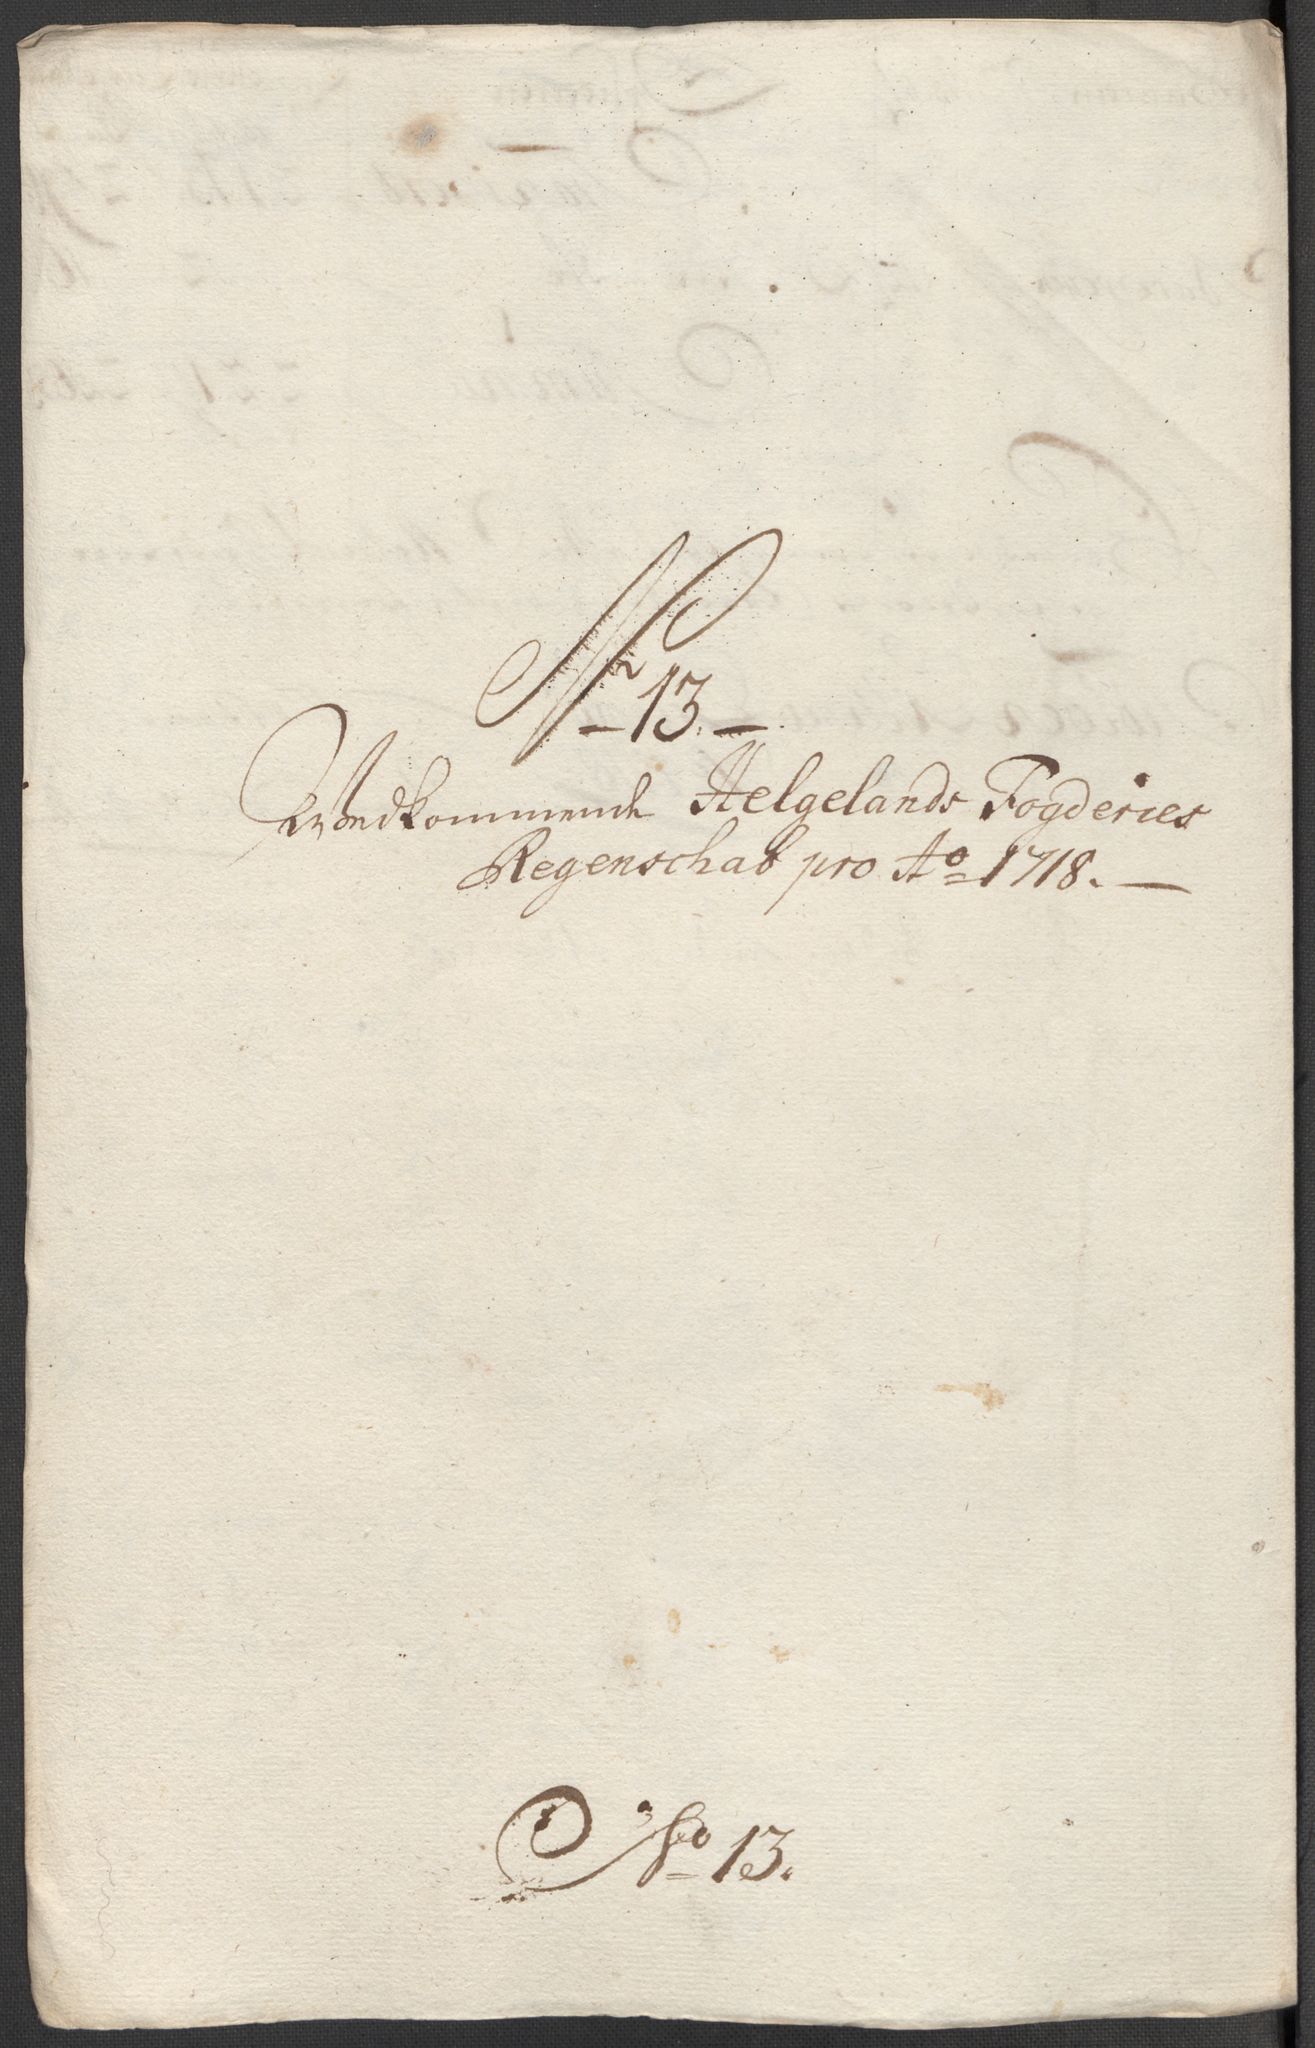 N 13.
Vedkommende Helgelands Fogderies
Regenschab pro Ao 1718.
No 13.